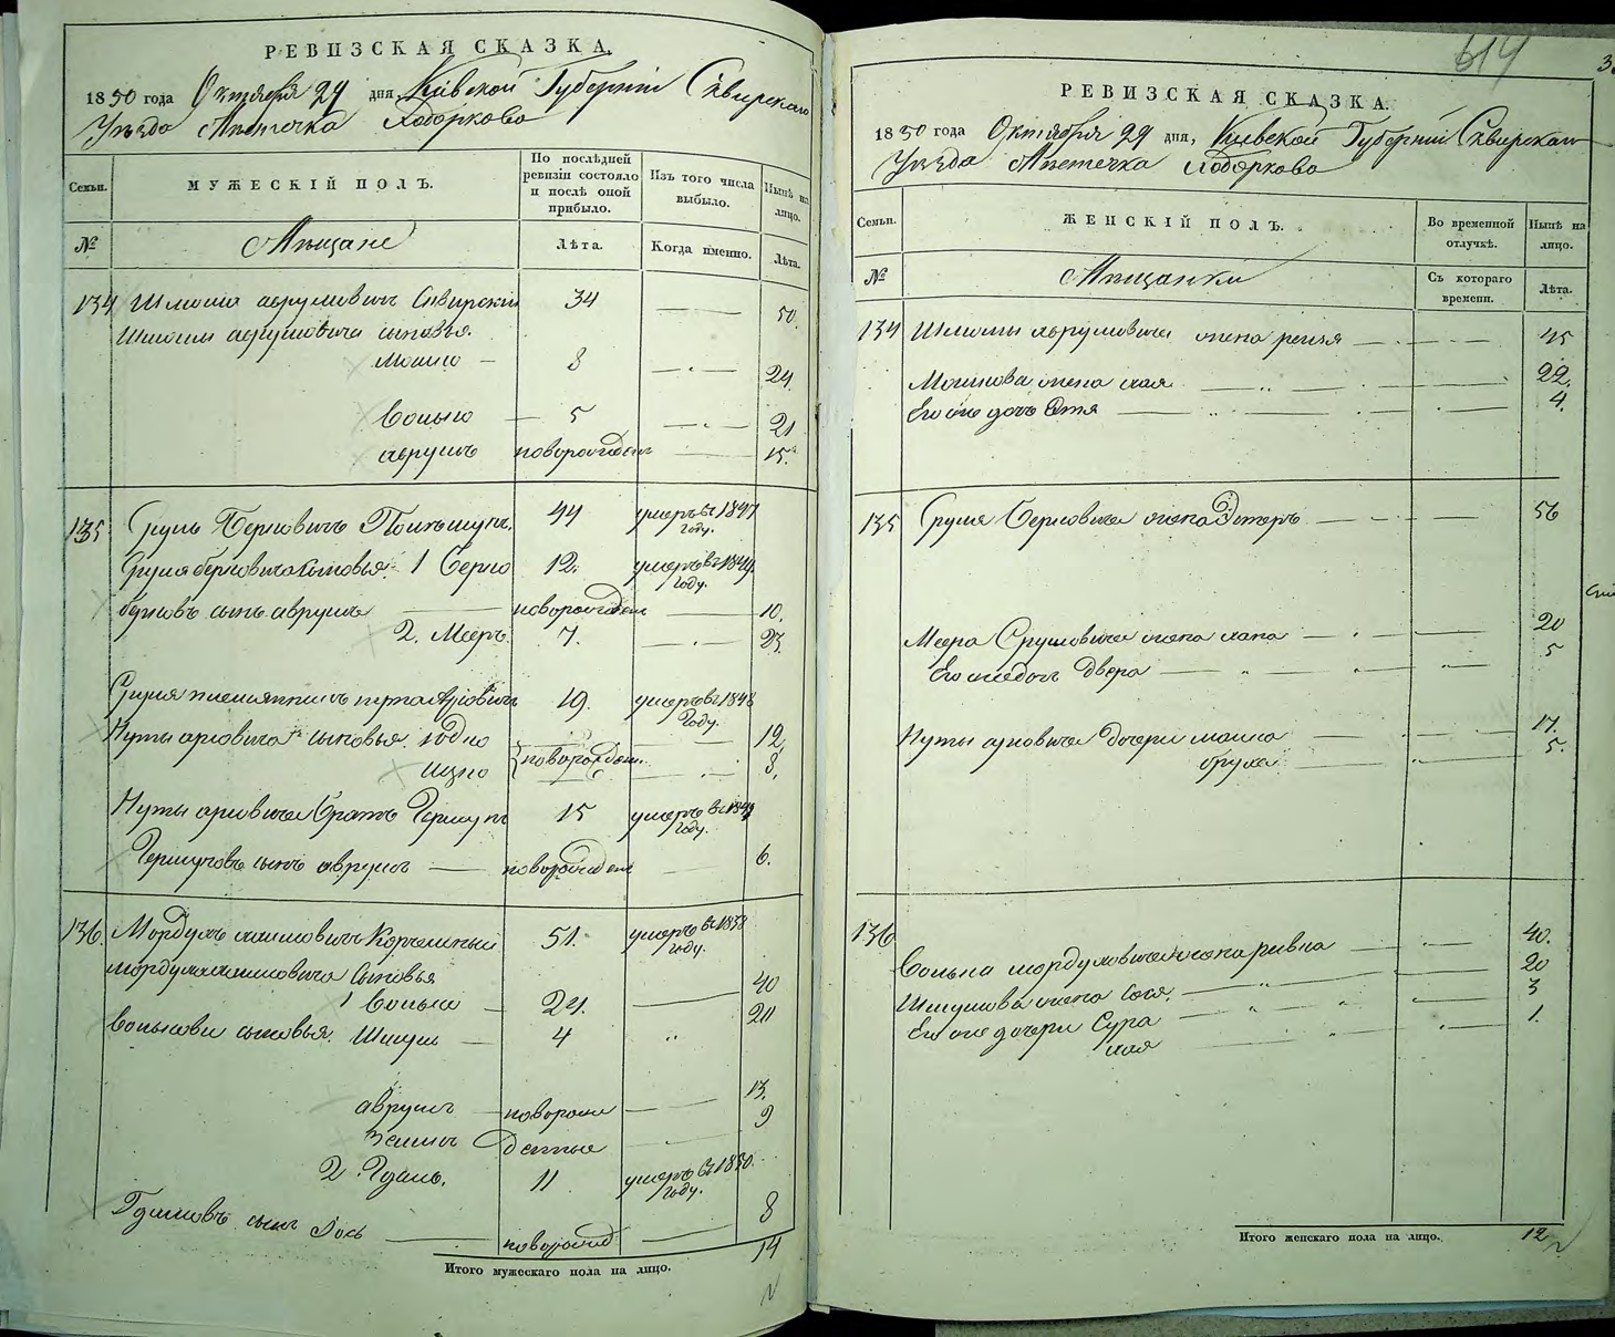 РЕВИЗСКАЯ СКАЗКА.
1850 года Октября 29 дня, Кіевской Губерніи Сквирскаго
Уѣзда Мѣстечка Ходоркова
Семьи. МУЖЕСКІЙ ПОЛЪ. По послѣдней ревизіи состояло и послѣ оной прибыло. Изъ того числа выбыло. Нынѣ на лицо.
№ Мѣщане Лѣта. Когда именно. Лѣта.
134 Шлиома Аврумовичъ Сквирскій 34 50.
Шлиомы Аврумовича сыновья.
Мошко 8 24.
Волько 5 21
Аврумъ новорожден 15.
135 Сруль Берковичъ 44 умеръ въ 1847 году.
Сруля Берковича сыновья. 1 Берко 12. умеръ въ 1849 году.
Берковъ сынъ Аврумъ новорожден 10.
2. Мееръ. 7. 23.
Сруля племянникъ 19. умеръ въ 1848 году.
Нуты Арновича сыновья. Юдко 12
Ицко новорожден. 8.
Нуты Арновича братъ Гершунъ 15 умеръ въ 1849 году.
Гершуновъ сынъ Аврумъ новорожден 6.
136. Мордухъ Хаимовичъ Корчемный 51. умеръ въ 1838 году.
Мордуха Хаимовича сыновья
1 Волько 24. 40
Вольковы сыновья. Шмуль 4 20
Аврумъ новорож 13.
Зельманъ денные 9
2. Гдаль. 11 умеръ въ 1850 году.
Гдалевъ сынъ Іось новорожд 8
Итого мужескаго пола на лицо. 14
614
РЕВИЗСКАЯ СКАЗКА.
1850 года Октября 29 дня, Кіевской Губерніи Сквирскаго
Уѣзда Мѣстечка Ходоркова
Семьи. ЖЕНСКІЙ ПОЛЪ. Во временной отлучкѣ. Нынѣ на лицо.
№ Мѣщанки Съ котораго времени. Лѣта.
134 Шлиомы Аврумовича жена Рейзя 45
Мошкова жена Хая 22.
Его же дочь Этя 4.
135 Сруля Берковича жена Эстеръ 56
Меера Срулевича жена Хана 20
Его же дочь Двера 5
Нуты Арновича дочери 17.
5.
136 Волька Мордуховича жена Ривка 40.
Шмулева жена Хася. 20
Его же дочери Сура 3
Хая 1.
Итого женскаго пола на лицо. 12